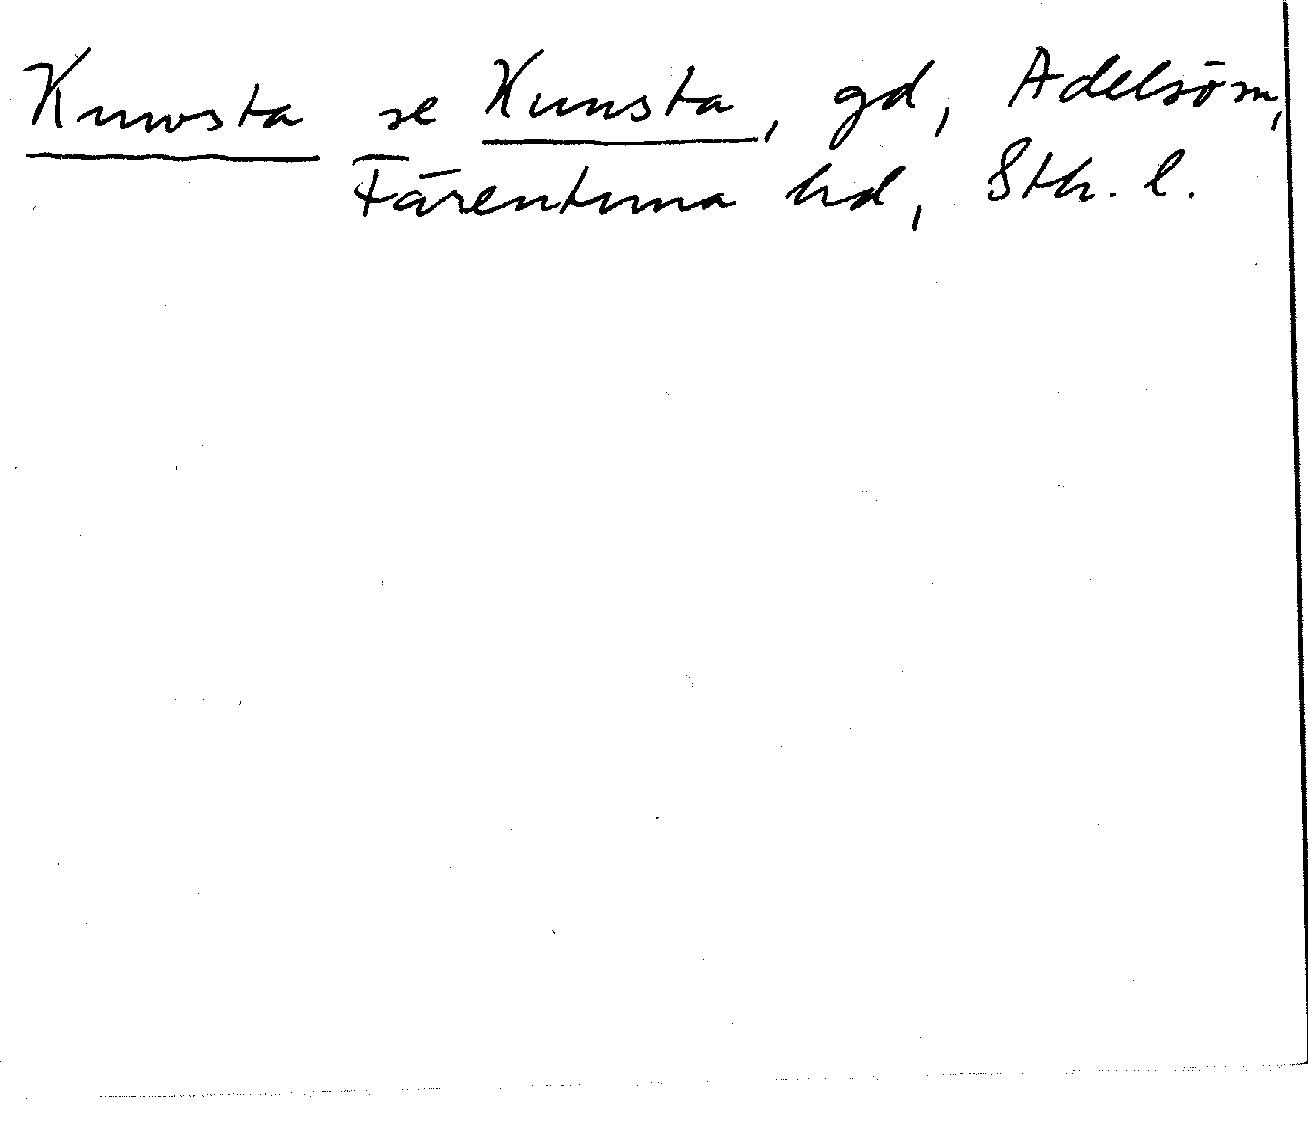 Knwsta se Kunsta, gd, Adelsö sn,
Färentuna hd, Sth. l.